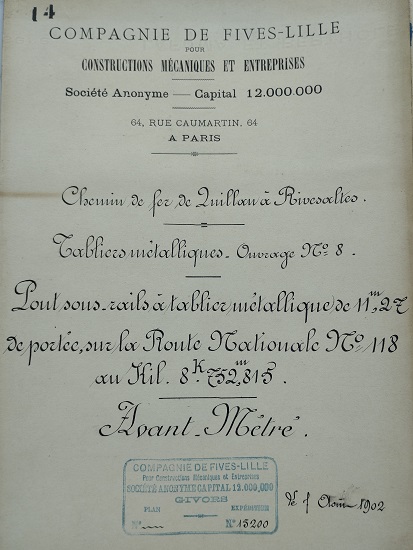 14
COMPAGNIE DE FIVES-LILLE
POUR
CONSTRUCTIONS MÉCANIQUES ET ENTREPRISES
Société Anonyme — Capital 12.000.000
64, RUE CAUMARTIN, 64
A PARIS
Chemin de fer de Quillan à Rivesaltes.
Tabliers métalliques. Ouvrage Nº 8.
Pont sous-rails à tablier métallique de 11m,27
de portée, sur la Route Nationale Nº 118
au Kil. 8K.752m,815.
Avant-Métré.
COMPAGNIE DE FIVES-LILLE
Pour Constructions Mécaniques et Entreprises
SOCIÉTÉ ANONYME CAPITAL 12.000,000
GIVORS
PLAN EXPÉDITION
Nº Nº 13200
1902